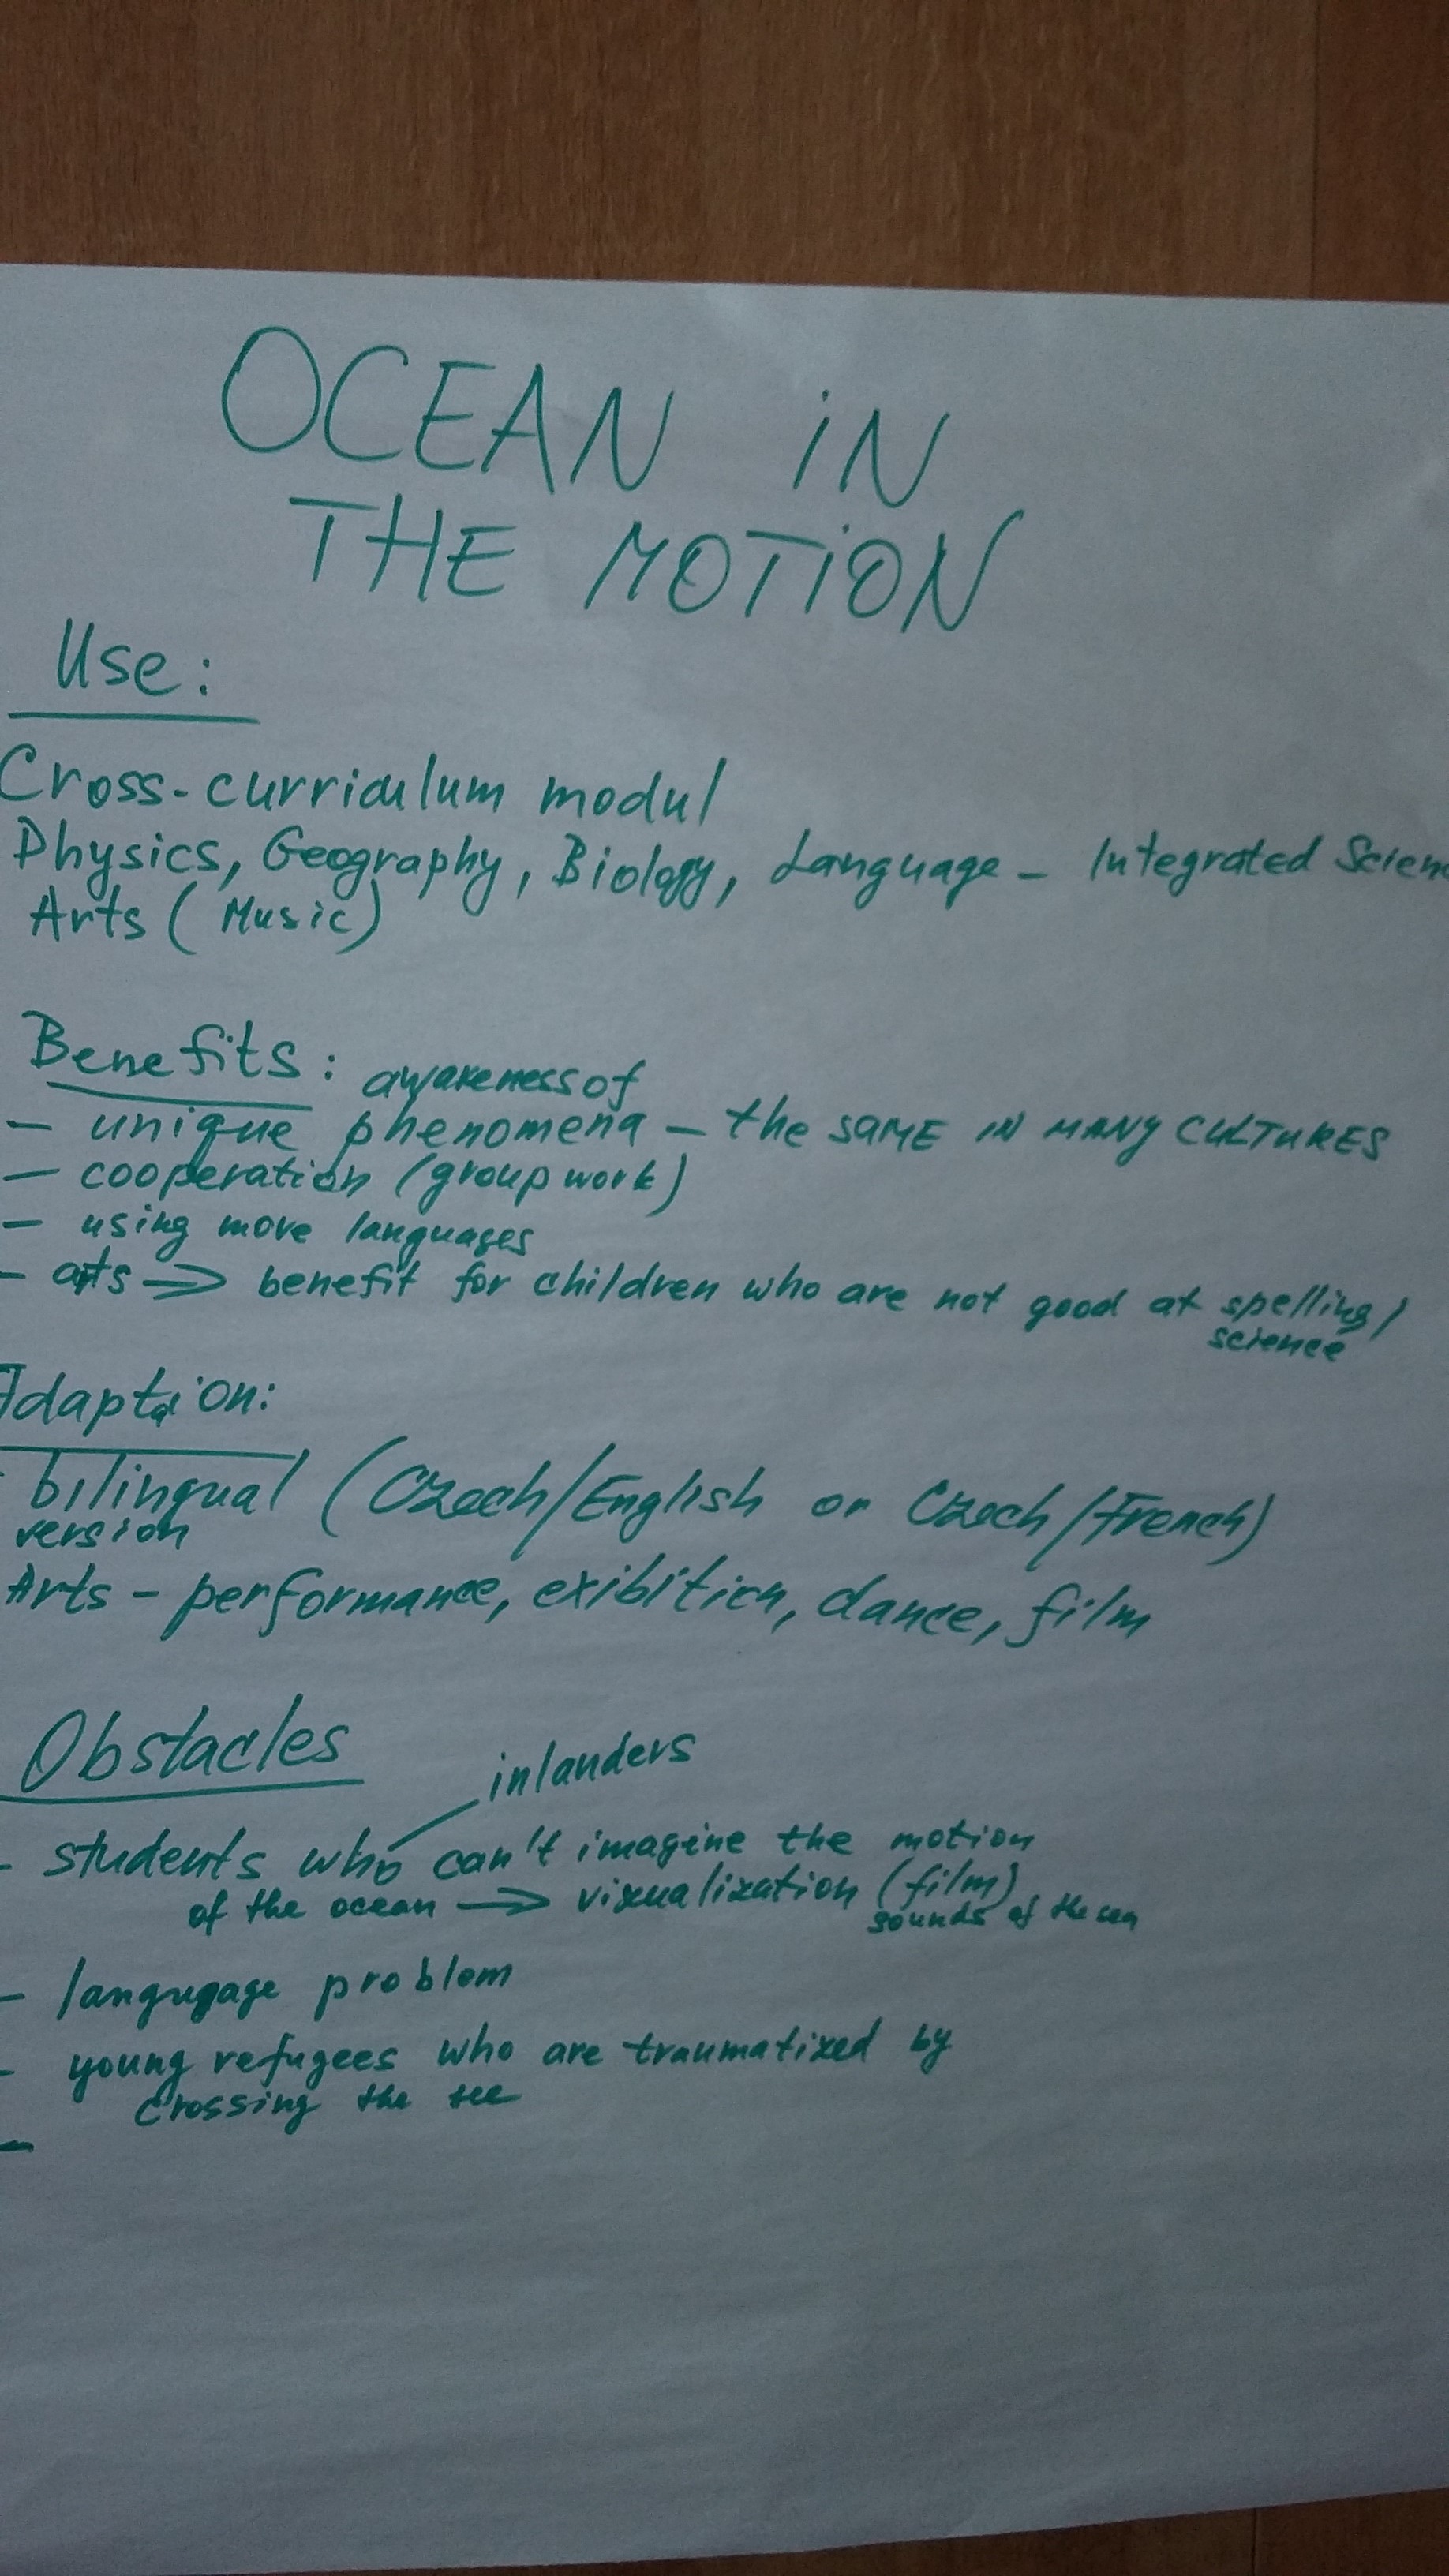 OCEAN iN
THE MOTiON
Use:
Cross-curriculum modul
Physics, Geography, Biology, Language - Integrated Scienc
Arts (Music)
Benefits: awareness of
- unique phenomena - the SAME IN MANY CULTURES
- cooperation (group work)
- using more languages
- arts => benefit for children who are not good at spelling/
science
Adaption:
- bilingual (Czech/English or Czech/French)
version
Arts - performance, exibition, dance, film
Obstacles
inlanders
- students who can't imagine the motion
of the ocean => visualization (film)
sounds of the sea
- langugage problem
- young refugees who are traumatized by
crossing the see
-